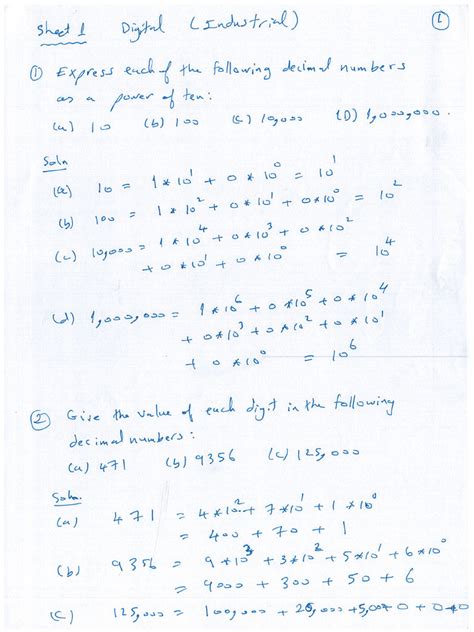 Sheet 1 Digital (Industrial) 1
① Express each of the following decimal numbers
as a power of ten:
(a) 10 (b) 100 (c) 10,000 (D) 1,000,000.
Soln
(a) 10 = 1*10^1 + 0*10^0 = 10^1
(b) 100 = 1*10^2 + 0*10^1 + 0*10^0 = 10^2
(c) 10,000 = 1*10^4 + 0*10^3 + 0*10^2
+ 0*10^1 + 0*10^0 = 10^4
(d) 1,000,000 = 1*10^6 + 0*10^5 + 0*10^4
+ 0*10^3 + 0*10^2 + 0*10^1
+ 0*10^0 = 10^6
② Give the value of each digit in the following
decimal numbers:
(a) 471 (b) 9356 (c) 125,000
Soln.
(a) 471 = 4*10^2 + 7*10^1 + 1*10^0
= 400 + 70 + 1
(b) 9356 = 9*10^3 + 3*10^2 + 5*10^1 + 6*10^0
= 9000 + 300 + 50 + 6
(c) 125,000 = 100,000 + 20,000 + 5,000 + 0 + 0 + 0